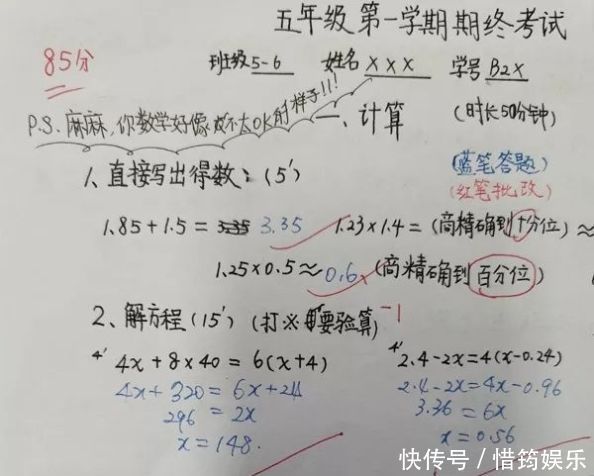 五年级第一学期期终考试
85分
班级5-6 姓名XXX 学号B2X
P.S.麻麻,你数学好像 不太OK的样子!!!
一、计算 (时长50分钟)
(蓝笔答题)
(红笔批改)
1、直接写出得数:(5')
1.85+1.5= 3.35 1.23×1.4=(商精确到十分位)≈
1.25×0.5≈0.6 (商精确到百分位)
2、解方程(15')(打※要验算) -1
4' 4x+8×40=6(x+4) 4' 2.4-2x=4(x-0.24)
4x+320=6x+24 2.4-2x=4x-0.96
296=2x 3.36=6x
x=148. x=0.56
快传号/惜筠娱乐